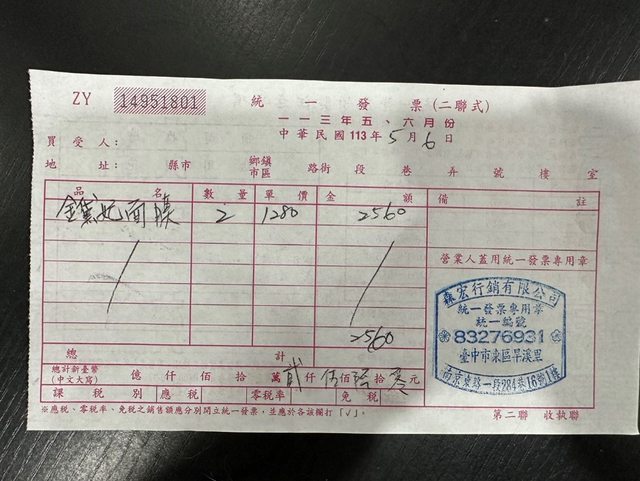 ZY 14951801 統一發票(二聯式)
一一三年五、六月份
中華民國113年5月6日
買受人:
地址: 縣市 鄉鎮市區 路街 段 巷 弄 號 樓 室
品名 數量 單價 金額 備註
金黛妃面膜 2 1280 2560
營業人蓋用統一發票專用章
森宏行銷有限公司
統一發票專用章
統一編號
83276931
臺中市東區旱溪里
南京東路一段284巷16號1樓
2560
總計
總計新臺幣(中文大寫) 億 仟 佰 拾 萬 貳 仟 伍 佰 陸 拾 零 元
課稅別 應稅 零稅率 免稅
※應稅、零稅率、免稅之銷售額應分別開立統一發票,並應於各該欄打「✓」。
第二聯 收執聯